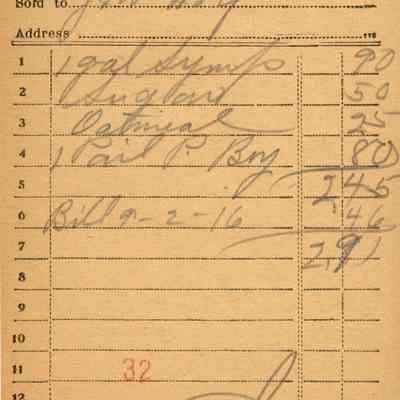 Sold to
Address
1 1 gal Syrup 90
2 Sugar 50
3 Oatmeal 25
4 1 Pail P. Boy 80
5 245
6 Bill 9-2-16 46
7 2.91
8
9
10
11 32
12